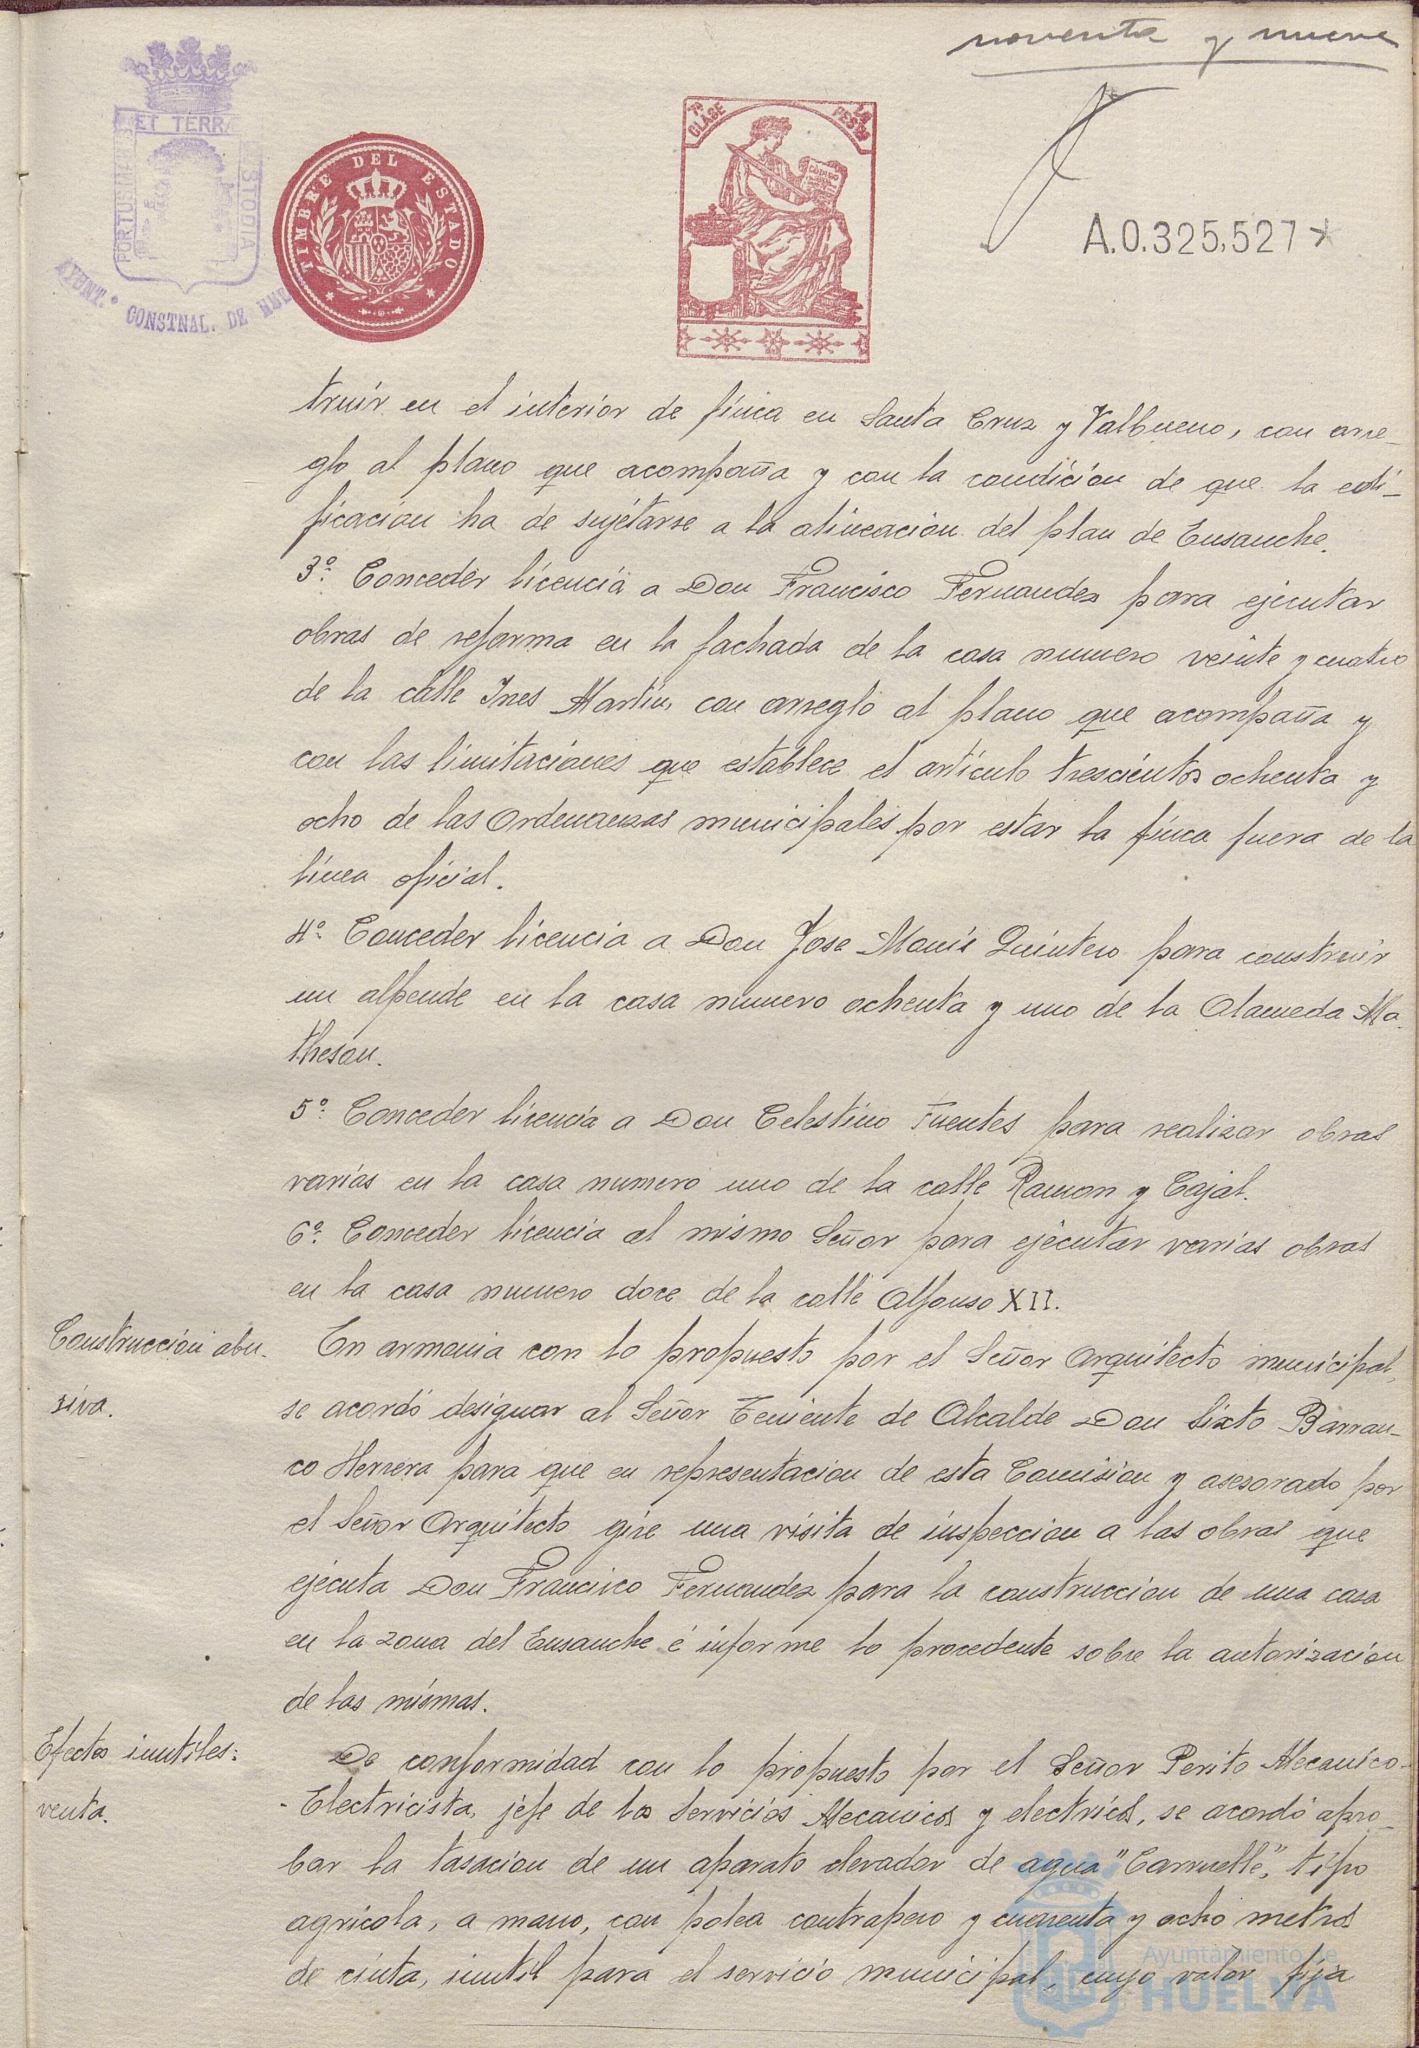 noventa y nueve
ET TERRA
PORTUS
STODIA
AYUNT. CONSTNAL. DE HUE
TIMBRE DEL ESTADO
7ª CLASE
PESTS
CODIGO
A.0.325,527
truir en el interior de finca en Santa Cruz y Valbueno, con arre-
glo al plano que acompaña y con la condición de que la edi-
ficacion ha de sujetarse a la alineacion del plan de Ensanche.
3º. Conceder licencia a Don Francisco Fernandez para ejecutar
obras de reforma en la fachada de la casa numero veinte y cuatro
de la calle Ines Martin, con arreglo al plano que acompaña y
con las limitaciones que establece el artículo trescientos ochenta y
ocho de las Ordenanzas municipales por estar la finca fuera de la
linea oficial.
4º. Conceder licencia a Don Jose Maria Quintero para construir
un alpende en la casa numero ochenta y uno de la Alameda Ma-
theson.
5º. Conceder licencia a Don Celestino Fuentes para realizar obras
varias en la casa numero uno de la calle Ramon y Cajal.
6º. Conceder licencia al mismo Señor para ejecutar varias obras
en la casa numero doce de la calle Alfonso XII.
Construcción abu-
siva.
En armonia con lo propuesto por el Señor Arquitecto municipal,
se acordó designar al Señor Teniente de Alcalde Don Sixto Barran-
co Herrera para que en representacion de esta Comision y asesorado por
el Señor Arquitecto gire una visita de inspeccion a las obras que
ejecuta Don Francisco Fernandez para la construccion de una casa
en la zona del Ensanche é informe lo procedente sobre la autorización
de las mismas.
Efectos inutiles:
venta.
De conformidad con lo propuesto por el Señor Perito Mecanico-
-Electricista, jefe de los Servicios Mecanicos y electricos, se acordó apro-
bar la tasacion de un aparato elevador de agua "Carruelle", tipo
agricola, a mano, con polea contrapeso y cuarenta y ocho metros
de cinta, inutil para el servicio municipal, cuyo valor fija
Ayuntamiento de
HUELVA